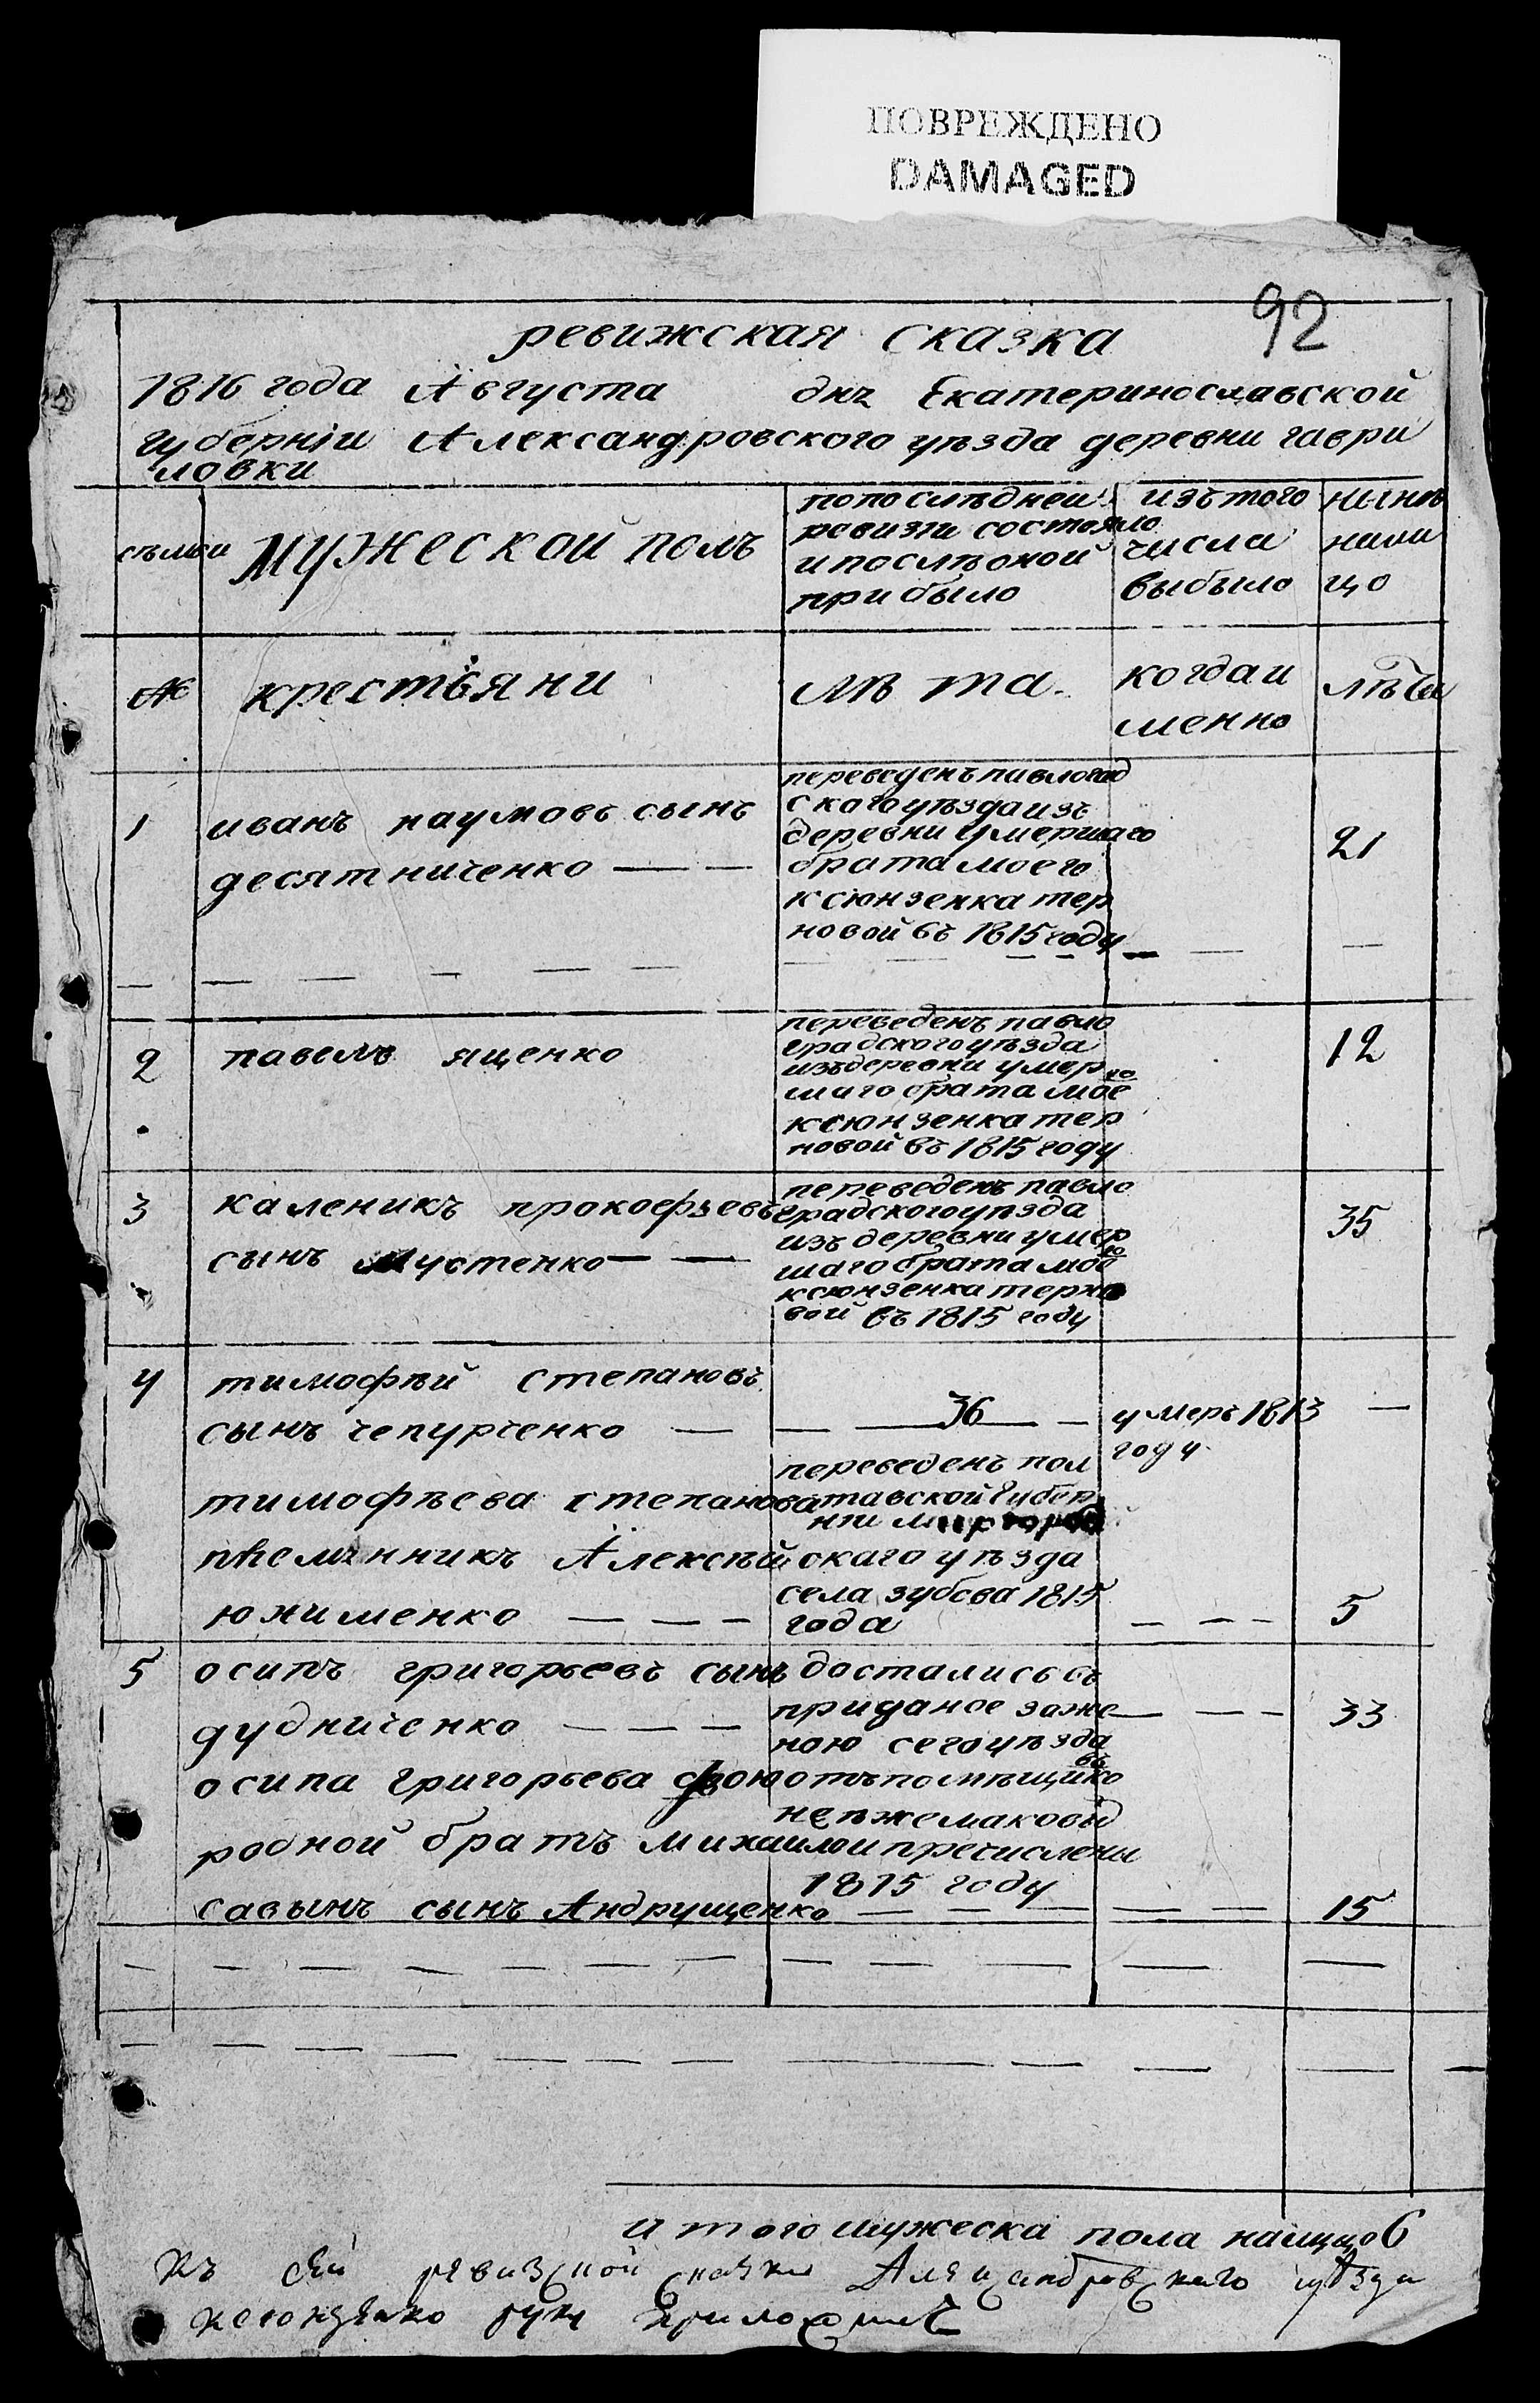 ПОВРЕЖДЕНО
DAMAGED
92
ревижская сказка
1816 года Августа днъ Екатеринославской
губерніи Александровского уѣзда деревни гаври
ловки
сѣмьи
мужеской полъ
попослѣдней
ревизіи состояло
ипослѣоной
прибыло
изътого
числа
выбыло
нынѣ
нали
цо
№
крестьяни
лѣта.
когдаи
менно
лѣта
1
иванъ наумовъ сынъ
десятниченко
переведенъ павлоград
скагоуѣздаизъ
деревни умершаго
брата моего
ксюнзенка тер
новой въ 1815 году
21
2
павелъ ященко
переведенъ павло
градскогоуѣзда
изъдеревни умер
шаго брата мое
го
ксюнзенка тер
новой въ 1815 году
12
3
каленикъ прокофьевъ
сынъ мустенко
переведенъ павло
градскогоуѣзда
изъ деревни умер
шаго брата мое
го
ксюнзенка терно
вой въ 1815 году
35
4
тимофѣй степановъ
сынъ чепурченко
36
умеръ 1813
году
тимофѣева степанова
племянникъ Алексѣй
юхименко
переведенъ пол
тавской губер
нии миргород
скаго уѣзда
села зубова 1815
года
5
5
осипъ григорьевъ сынъ
дудниченко
достались въ
приданое заже
ною сего уѣзда
отъ помѣщико
въ
33
осипа григорьева двою
родной братъ михаило
савынъ сынъ Андрущенко
и пречислены
1815 году
15
итого мужеска пола налицо 6
Къ сей ревизской сказки Александровскаго уѣзда
ксюнзенко руку приложилъ